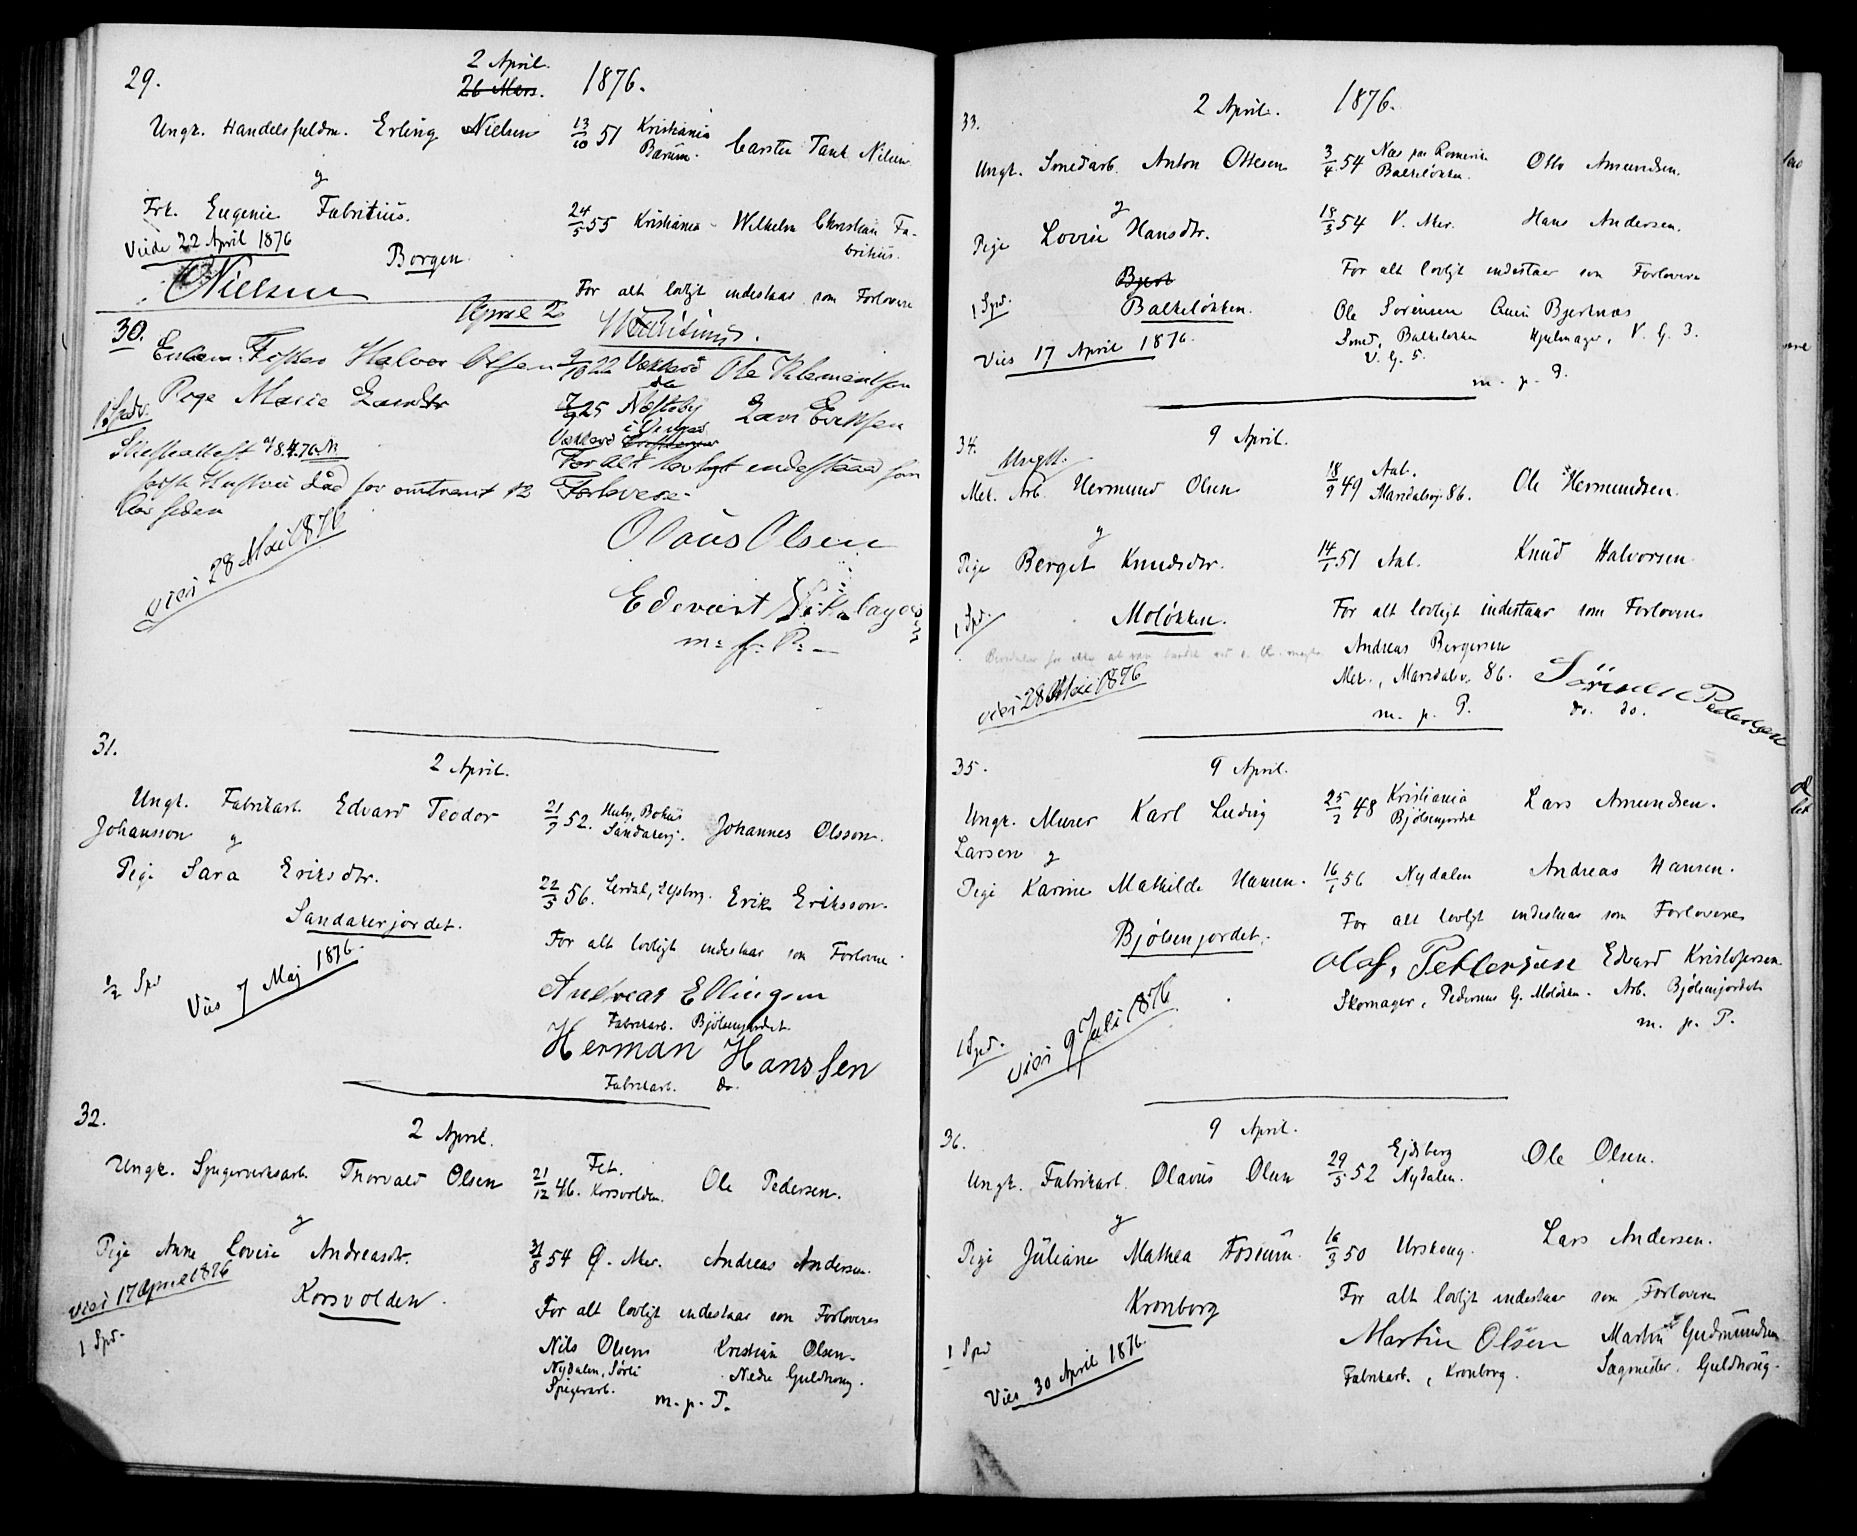 29.
2 April.
26 Mars. 1876.
Ungk. Handelsfuldm. Erling Nielsen 13/10 51 Kristiania Bærum. Carsten Tank Nilsen
g
Frk. Eugenie Fabritius. 24/5 55 Kristiania - Wilhelm Christian Fabritius.
Viede 22 April 1876
Borgen.
For alt lovligt indestaar som Forlovere
Nielsen
WFabritius.
30. April 2
Enkem. Halvor Olsen 22 Vækkerø Ole Klementsen
Pige Marie 25 Næsseby
1 Spd.
for omtrent 12
Aar siden
For alt lovligt indestaar som
Forlovere
Olaus Olsen
Edevart
m: f: P: -
viei 28 Mai 1876
31.
2 April.
Ungk. Fabrikarb. Edvard Teodor 21/9 52. Sandakerj. Johannes Olsson.
Johansson g
Pige Sara Eriksdtr. 22/3 56. Erik Eriksson.
Sandakerjordet.
For alt lovligt indestaar som Forlovere
1/2 Spd
Vies 7 Maj 1876.
Andreas Ellingsen
Fabrikarb. Bjølsenjordet.
Herman Hanssen
Fabrikarb. do.
32.
2 April.
Ungk. Spigerverksarb. Thorvald Olsen 21/12 46. Fet. Korsvolden. Ole Pedersen.
g
Pige Anne Lovise Andreasdtr. 31/8 54 Ø. Aker. Andreas Andersen.
viei 17 April 1876
Korsvolden.
For alt lovligt indestaar som Forlovere
1 Spd.
Nils Olsen Kristian Olsen.
Nydalen, Nedre Guldhoug.
Spigerarb.
m. p. P.
33.
2 April. 1876.
Ungk. Smedarb. Anton Ottesen 3/4 54 Næs paa Romerike Balkeløkken. Otto Amundsen.
g
Pige Lovise Hansdtr. 18/3 54 V. Aker. Hans Andersen.
For alt lovligt indestaar som Forlovere
1 Spd.
Balkeløkken.
Ole Sørensen Bjerknæs
Smed, Balkeløkken Hjulmager, V. G. 3.
V. G. 5.
Vies 17 April 1876.
m. p. P.
34.
9 April.
Ungk.
Mek. Arb. Hermund Olsen 18/9 49 Aal. Maridalsvj. 86. Ole Hermundsen.
g
Pige Bergit Knudsdtr. 14/1 51 Aal. Knud Halvorsen
1 Spd.
Moløkken.
For alt lovligt indestaar som Forlovere
Andreas Bergersen
Mek., Maridalsv. 86. Sørensen Pedersen
m. p. P. do. do.
viei 28 Mai 1876
35.
9 April.
Ungk. Murer Karl Ludvig 25/2 48 Kristiania Bjølsenjordet Lars Amundsen.
Larsen g
Pige Karine Mathilde Hansen. 16/1 56 Nydalen Andreas Hansen.
Bjølsenjordet.
For alt lovligt indestaar som Forlovere
Olaf, Pettersen Edvard Kristofersen
Skomager, Pedersens G. Moløkken. Arb. Bjølsenjordet
m. p. P.
1 Spd.
viei 9 Juli 1876.
36.
9 April.
Ungk. Fabrikarb. Olavus Olsen 29/5 52 Ejdsberg Nydalen. Ole Olsen.
g
Pige Juliane Mathea Fossum. 16/3 50 Urskoug. Lars Andersen.
Kronborg
For alt lovligt indestaar som Forlovere
1 Spd
Vies 30 April 1876.
Martin Olsen Martin Gudmundsen
Fabrikarb., Kronborg. Sagmester, Guldhoug.